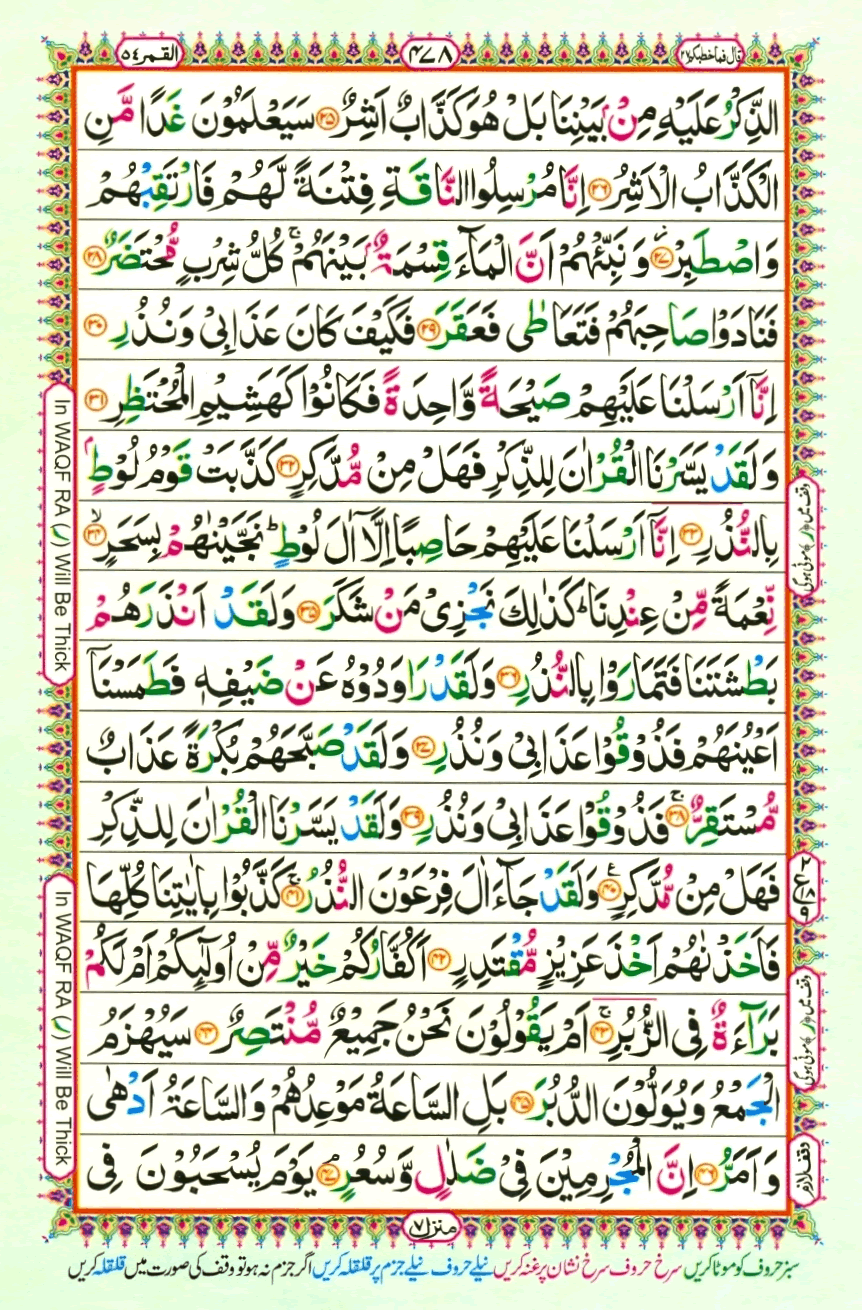 قال فما خطبكم ٢٧
٤٧٨
القمر ٥٤
الذِّكْرُ عَلَيْهِ مِنْۢ بَيْنِنَا بَلْ هُوَ كَذَّابٌ اَشِرٌ ﴿۲۵﴾ سَيَعْلَمُوْنَ غَدًا مَّنِ
الْكَذَّابُ الْاَشِرُ ﴿۲۶﴾ اِنَّا مُرْسِلُوا النَّاقَةِ فِتْنَةً لَّهُمْ فَارْتَقِبْهُمْ
وَاصْطَبِرْ ﴿۲۷﴾ وَنَبِّئْهُمْ اَنَّ الْمَآءَ قِسْمَةٌۢ بَيْنَهُمْ ۚ كُلُّ شِرْبٍ مُّحْتَضَرٌ ﴿۲۸﴾
فَنَادَوْا صَاحِبَهُمْ فَتَعَاطٰى فَعَقَرَ ﴿۲۹﴾ فَكَيْفَ كَانَ عَذَابِىْ وَنُذُرِ ﴿۳۰﴾
اِنَّاۤ اَرْسَلْنَا عَلَيْهِمْ صَيْحَةً وَّاحِدَةً فَكَانُوْا كَهَشِيْمِ الْمُحْتَظِرِ ﴿۳۱﴾
وَلَقَدْ يَسَّرْنَا الْقُرْاٰنَ لِلذِّكْرِ فَهَلْ مِنْ مُّدَّكِرٍ ﴿۳۲﴾ كَذَّبَتْ قَوْمُ لُوْطٍۭ
بِالنُّذُرِ ﴿۳۳﴾ اِنَّاۤ اَرْسَلْنَا عَلَيْهِمْ حَاصِبًا اِلَّاۤ اٰلَ لُوْطٍ ؕ نَجَّيْنٰهُمْ بِسَحَرٍ ﴿۳۴﴾ۙ
نِّعْمَةً مِّنْ عِنْدِنَا ؕ كَذٰلِكَ نَجْزِىْ مَنْ شَكَرَ ﴿۳۵﴾ وَلَقَدْ اَنْذَرَهُمْ
بَطْشَتَنَا فَتَمَارَوْا بِالنُّذُرِ ﴿۳۶﴾ وَلَقَدْ رَاوَدُوْهُ عَنْ ضَيْفِهٖ فَطَمَسْنَاۤ
اَعْيُنَهُمْ فَذُوْقُوْا عَذَابِىْ وَنُذُرِ ﴿۳۷﴾ وَلَقَدْ صَبَّحَهُمْ بُكْرَةً عَذَابٌ
مُّسْتَقِرٌّ ﴿۳۸﴾ۚ فَذُوْقُوْا عَذَابِىْ وَنُذُرِ ﴿۳۹﴾ وَلَقَدْ يَسَّرْنَا الْقُرْاٰنَ لِلذِّكْرِ
فَهَلْ مِنْ مُّدَّكِرٍ ﴿۴۰﴾ع وَلَقَدْ جَآءَ اٰلَ فِرْعَوْنَ النُّذُرُ ﴿۴۱﴾ۚ كَذَّبُوْا بِاٰيٰتِنَا كُلِّهَا
فَاَخَذْنٰهُمْ اَخْذَ عَزِيْزٍ مُّقْتَدِرٍ ﴿۴۲﴾ اَكُفَّارُكُمْ خَيْرٌ مِّنْ اُولٰٓئِكُمْ اَمْ لَكُمْ
بَرَآءَةٌ فِى الزُّبُرِ ﴿۴۳﴾ۚ اَمْ يَقُوْلُوْنَ نَحْنُ جَمِيْعٌ مُّنْتَصِرٌ ﴿۴۴﴾ سَيُهْزَمُ
الْجَمْعُ وَيُوَلُّوْنَ الدُّبُرَ ﴿۴۵﴾ بَلِ السَّاعَةُ مَوْعِدُهُمْ وَالسَّاعَةُ اَدْهٰى
وَاَمَرُّ ﴿۴۶﴾ اِنَّ الْمُجْرِمِيْنَ فِىْ ضَلٰلٍ وَّسُعُرٍ ﴿۴۷﴾ۘ يَوْمَ يُسْحَبُوْنَ فِى
In WAQF RA (ر) Will Be Thick
In WAQF RA (ر) Will Be Thick
وقف میں (ر) موٹی ہوگی
٢
ع
١٨
٩
وقف میں (ر) موٹی ہوگی
وقف لازم
منزل ٧
سبز حروف کو موٹا کریں سرخ حروف سرخ نشان پر غنہ کریں نیلے حروف نیلے جزم پر قلقلہ کریں اگر جزم نہ ہو تو وقف کی صورت میں قلقلہ کریں